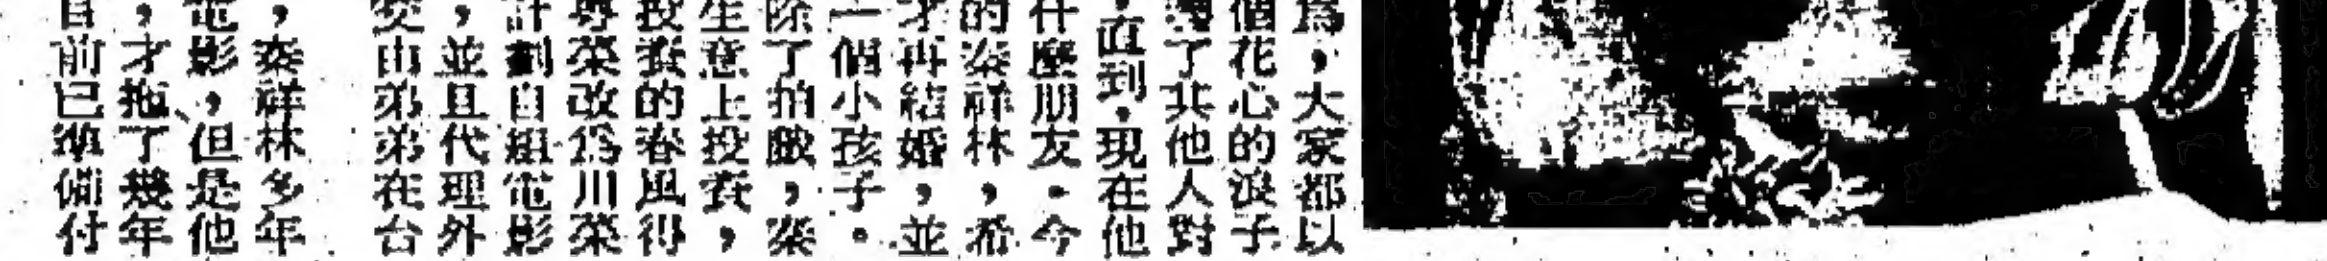 爲，大家都以
個花心的浪子
了其他人對
，直到．現在他
什麼朋友。今
的秦祥林，希
才再結婚，並
一個小孩子。
除了拍戲，秦
生意上投資，
投資的春風得
粵菜改爲川菜
計劃自組電影
，並且代理外
交由弟弟在台
，秦祥林多年
電影，但是他
，才拖了幾年
目前已準備付